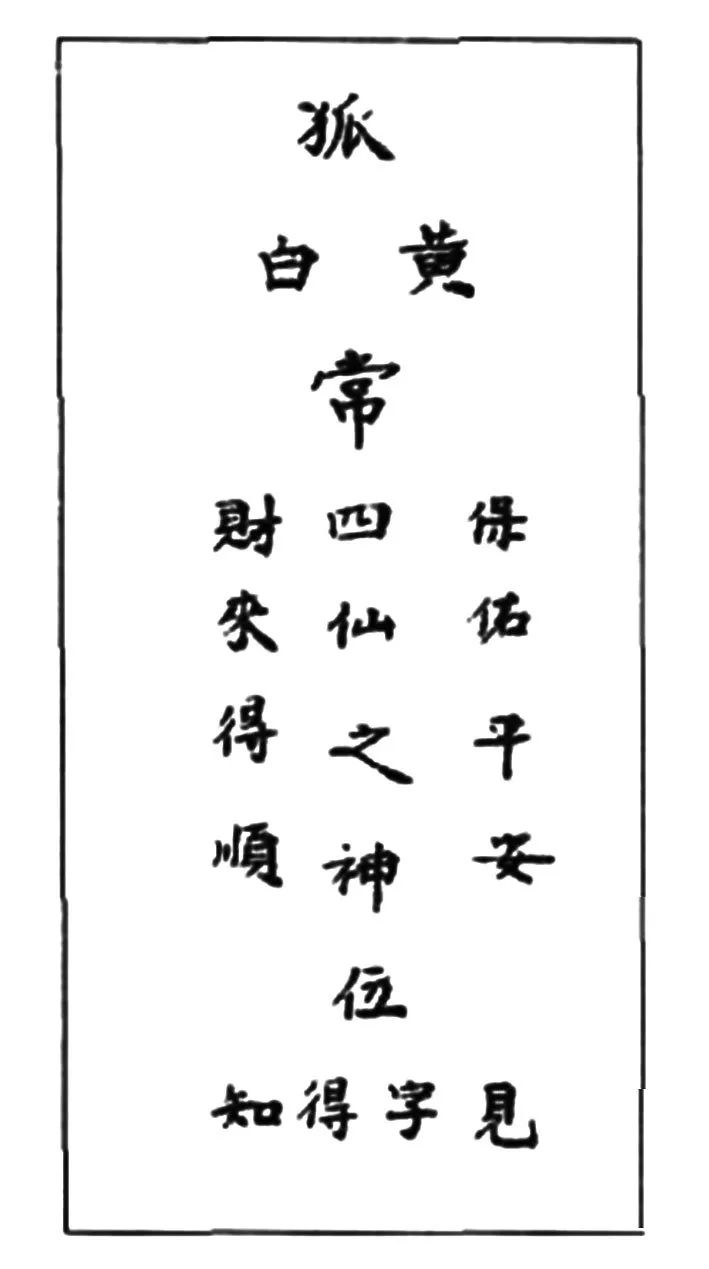 狐
黄
白
常
保佑平安
四仙之神位
財來得順
見字得知